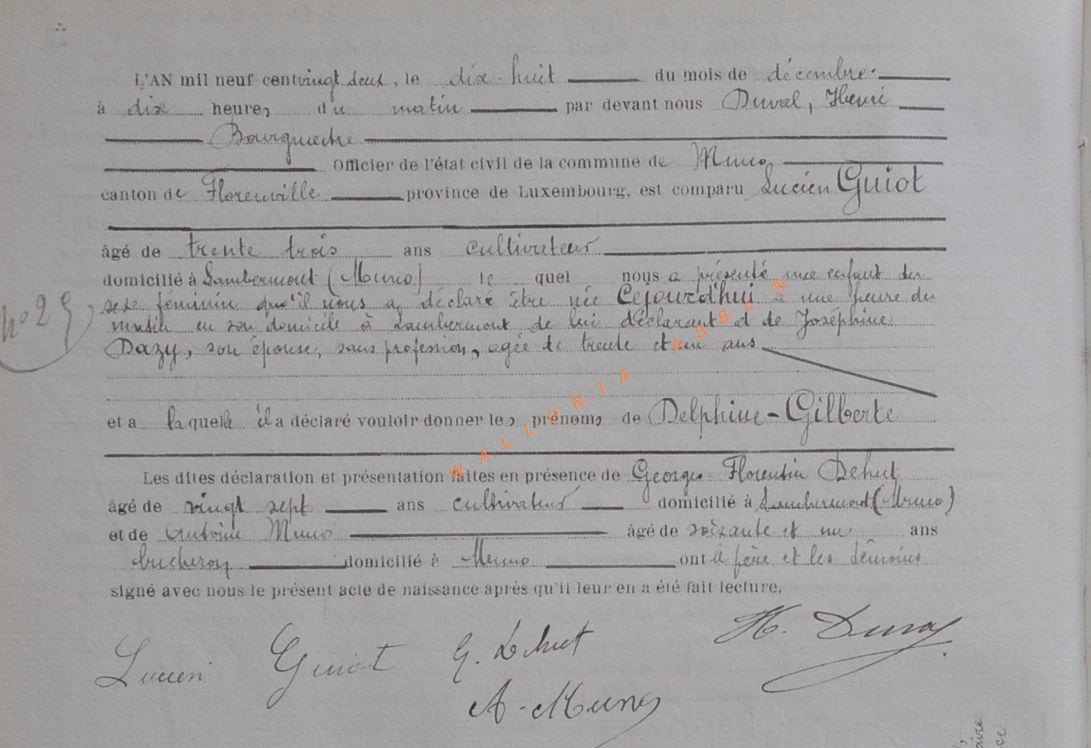 L'AN mil neuf cent vingt deux, le dix-huit du mois de décembre.
à dix heures du matin par devant nous Duval, Henri
Bourgmestre
Officier de l'état civil de la commune de Muno
canton de Florenville province de Luxembourg, est comparu Lucien Guiot
âgé de trente trois ans cultivateur
domicilié à Lambermont (Muno) le quel nous a présenté une enfant du
sexe féminin qu'il nous a déclaré être née Cejourd'hui à une heure du
matin en son domicile à Lambermont de lui déclarant et de Joséphine
Dazy, son épouse, sans profession, agée de trente et un ans
et a laquelle il a déclaré vouloir donner les prénoms de Delphine-Gilberte
Les dites déclaration et présentation faites en présence de Georges Florentin Dehut
âgé de vingt sept ans cultivateur domicilié à Lambermont (Muno)
et de Antoine Muno âgé de soixante et un ans
bucheron domicilié à Muno ont le père et les témoins
signé avec nous le présent acte de naissance après qu'il leur en a été fait lecture.
n° 25
Lucien Guiot G. Dehut H. Duval
A. Muno
WALLONIA ASBL ©